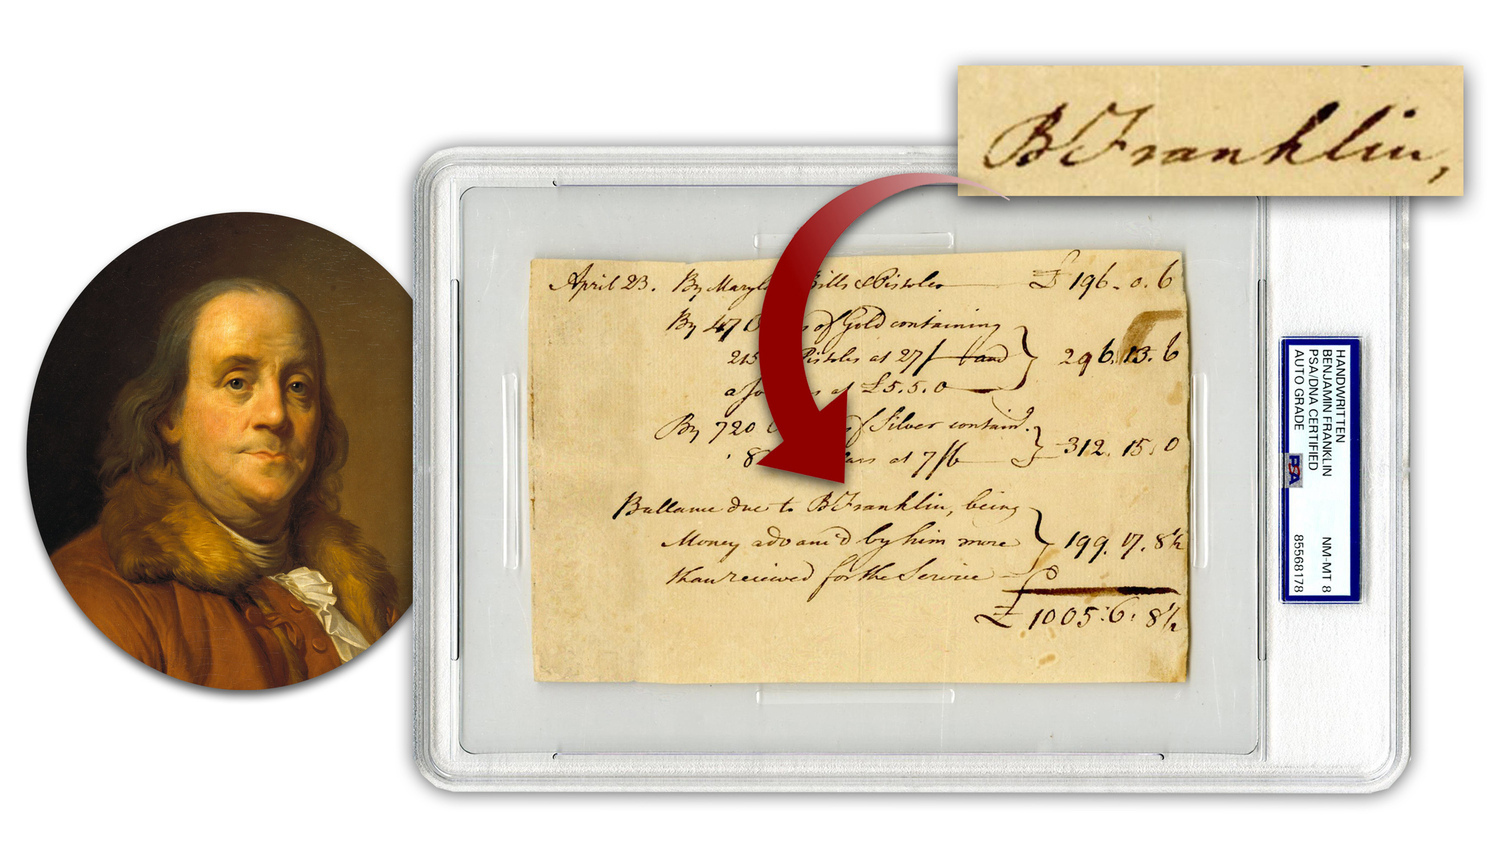 B Franklin,
April 23. By Maryl ills & Pistoles £ 196. 0. 6
By 47 of Gold containing
215 Pistoles at 27/ and 296. 13. 6
a Jo s at £5.5.0
By 720 of Silver contain.g
8 ars at 7/6 312. 15. 0
Ballance due to B Franklin, being
Money advanc'd by him more 199. 17. 8½
than recieved for the Service
£ 1005. 6. 8½
HANDWRITTEN
BENJAMIN FRANKLIN
PSA/DNA CERTIFIED
AUTO GRADE
NM-MT 8
85568178
PSA